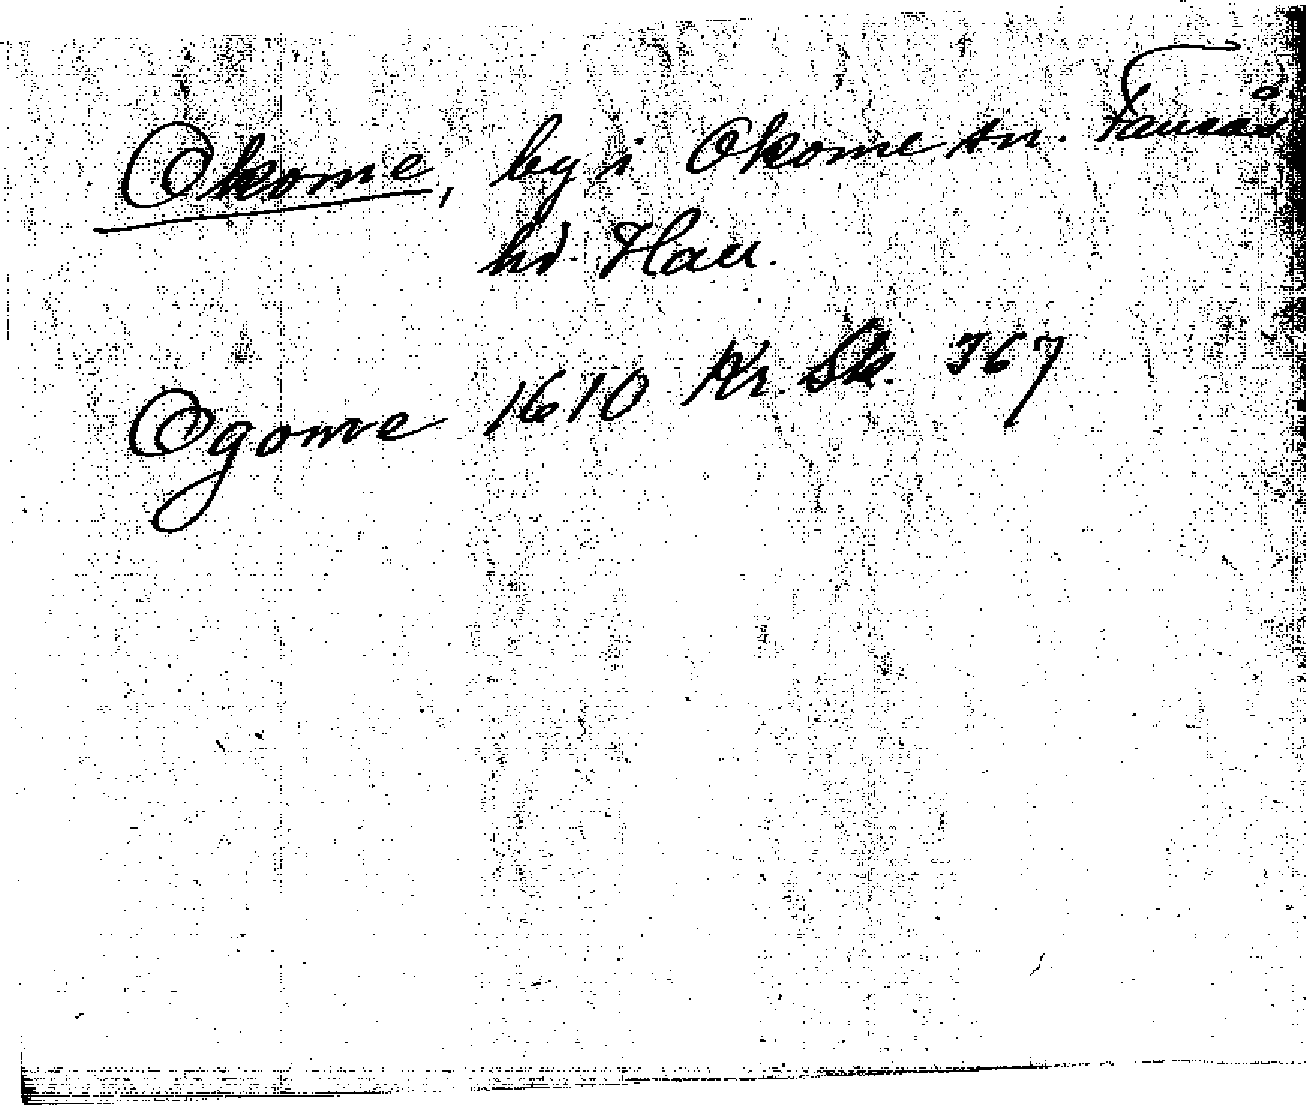 Okome, by i Okome sn. Faurås
hd. Hall.
Ogome 1610 Kr. Sk. 367